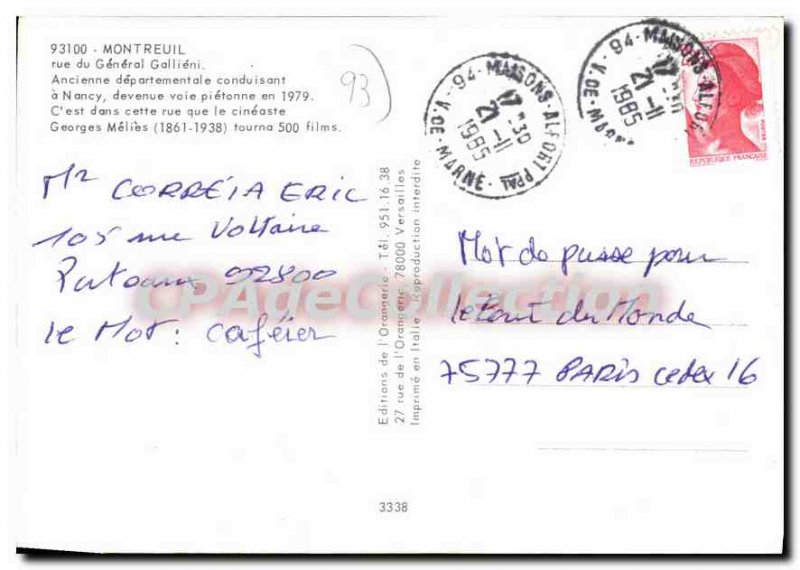 93100 - MONTREUIL
rue du Général Galliéni.
Ancienne départementale conduisant
à Nancy, devenue voie piétonne en 1979.
C'est dans cette rue que le cinéaste
Georges Méliès (1861-1938) tourna 500 films.
93
94 - MAISONS-ALFORT PPAL
21 -11
1985
V. DE - MARNE
94 - MAISONS-ALFOR
21 -11
1985
V. DE - MARN
REPUBLIQUE FRANÇAISE
POSTES
Mr CORRÉIA ERIC
105 rue Voltaire
Puteaux 92800
le Mot : caféier
Editions de l'Orangerie - Tél. 951.16.38
27 rue de l'Orangerie 78000 Versailles
Imprimé en Italie Reproduction interdite
Mot de passe pour
le bout du Monde
75777 PARIS cedex 16
CPAdeCollection
3338